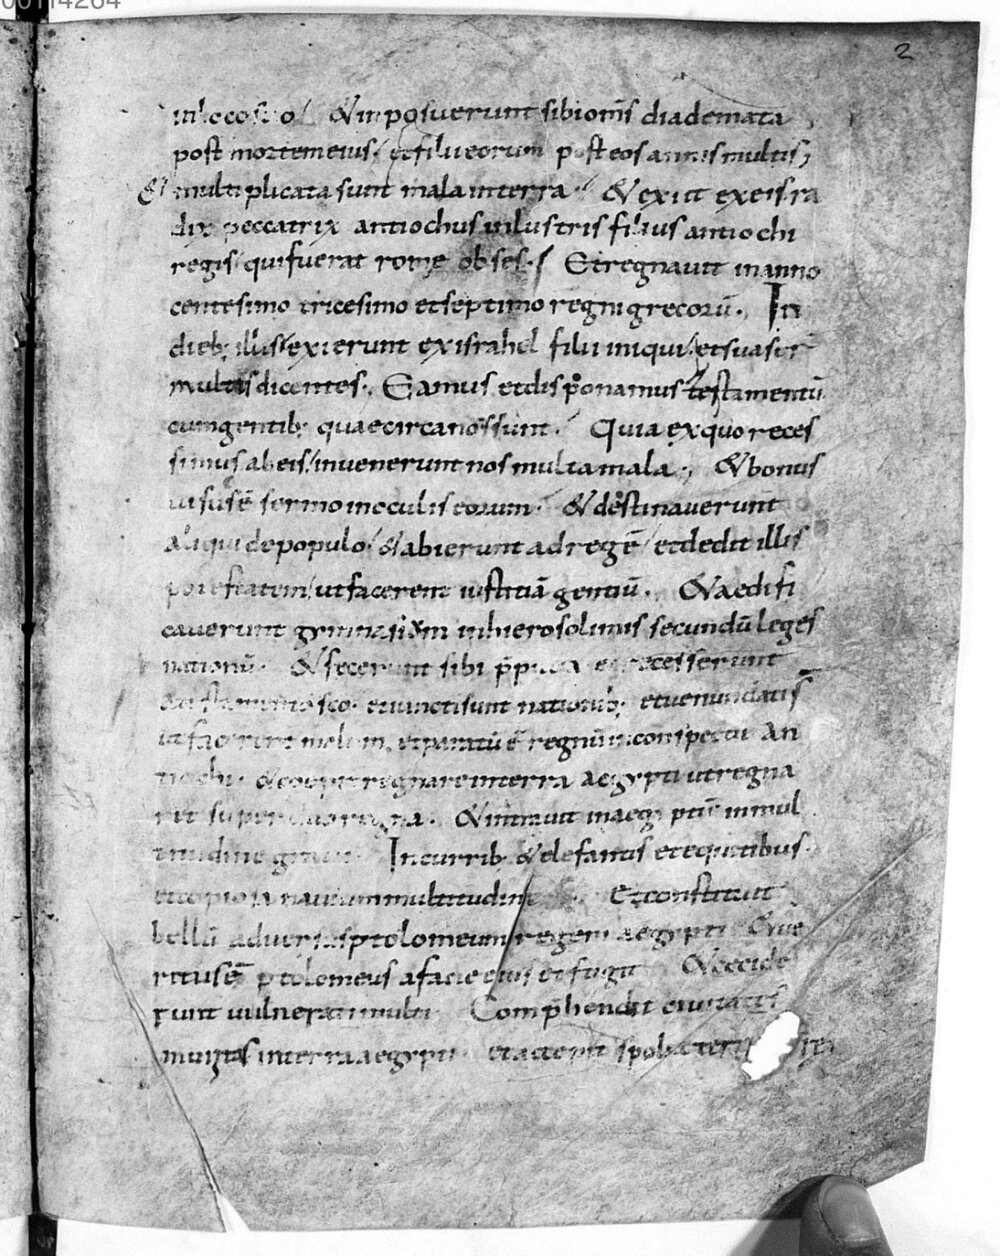 00114264
2
in loco suo / & inposuerunt sibi om̅s diademata
post mortem eius / et filii eorum post eos annis multis;
Et multiplicata sunt mala in terra. & exiit ex eis ra
dix peccatrix antiochus inlustris filius antiochi
regis qui fuerat rome obses. Et regnavit in anno
centesimo tricesimo et septimo regni grecorū. In
dieb; illis exierunt ex israhel filii iniqui et suaser̅
multis dicentes. Eamus et disponamus testamentū
cum gentib; quae circa nos sunt. Quia ex quo reces
simus ab eis / invenerunt nos multa mala. & bonus
visus ē sermo in oculis eorum. & destinaverunt
aliqui de populo / & abierunt ad regē / et dedit illis
potestatem / ut facerent iustitiā gentiū. & aedifi
caverunt gymnasium in hierosolimis secundū leges
nationū. & fecerunt sibi p̄putia et recesserunt
a testamento sc̅o. et iuncti sunt nationib; et venundati s̅
ut facerent malum, et paratū ē regnū in conspectu an
tiochi. & coepit regnare in terra aegypti ut regna
ret super duo regna. & intravit in aegyptū in mul
titudine gravi. In currib; & elefantis et equitibus.
et copiosa navium multitudine Et constituit
bellū adversus ptolomeum regem aegypti & ve
ritus ē ptolomeus a facie eius et fugit & cecide
runt vulnerati multi. Comp̄hendit civitates
munitas in terra aegypti et accepit spolia terrę